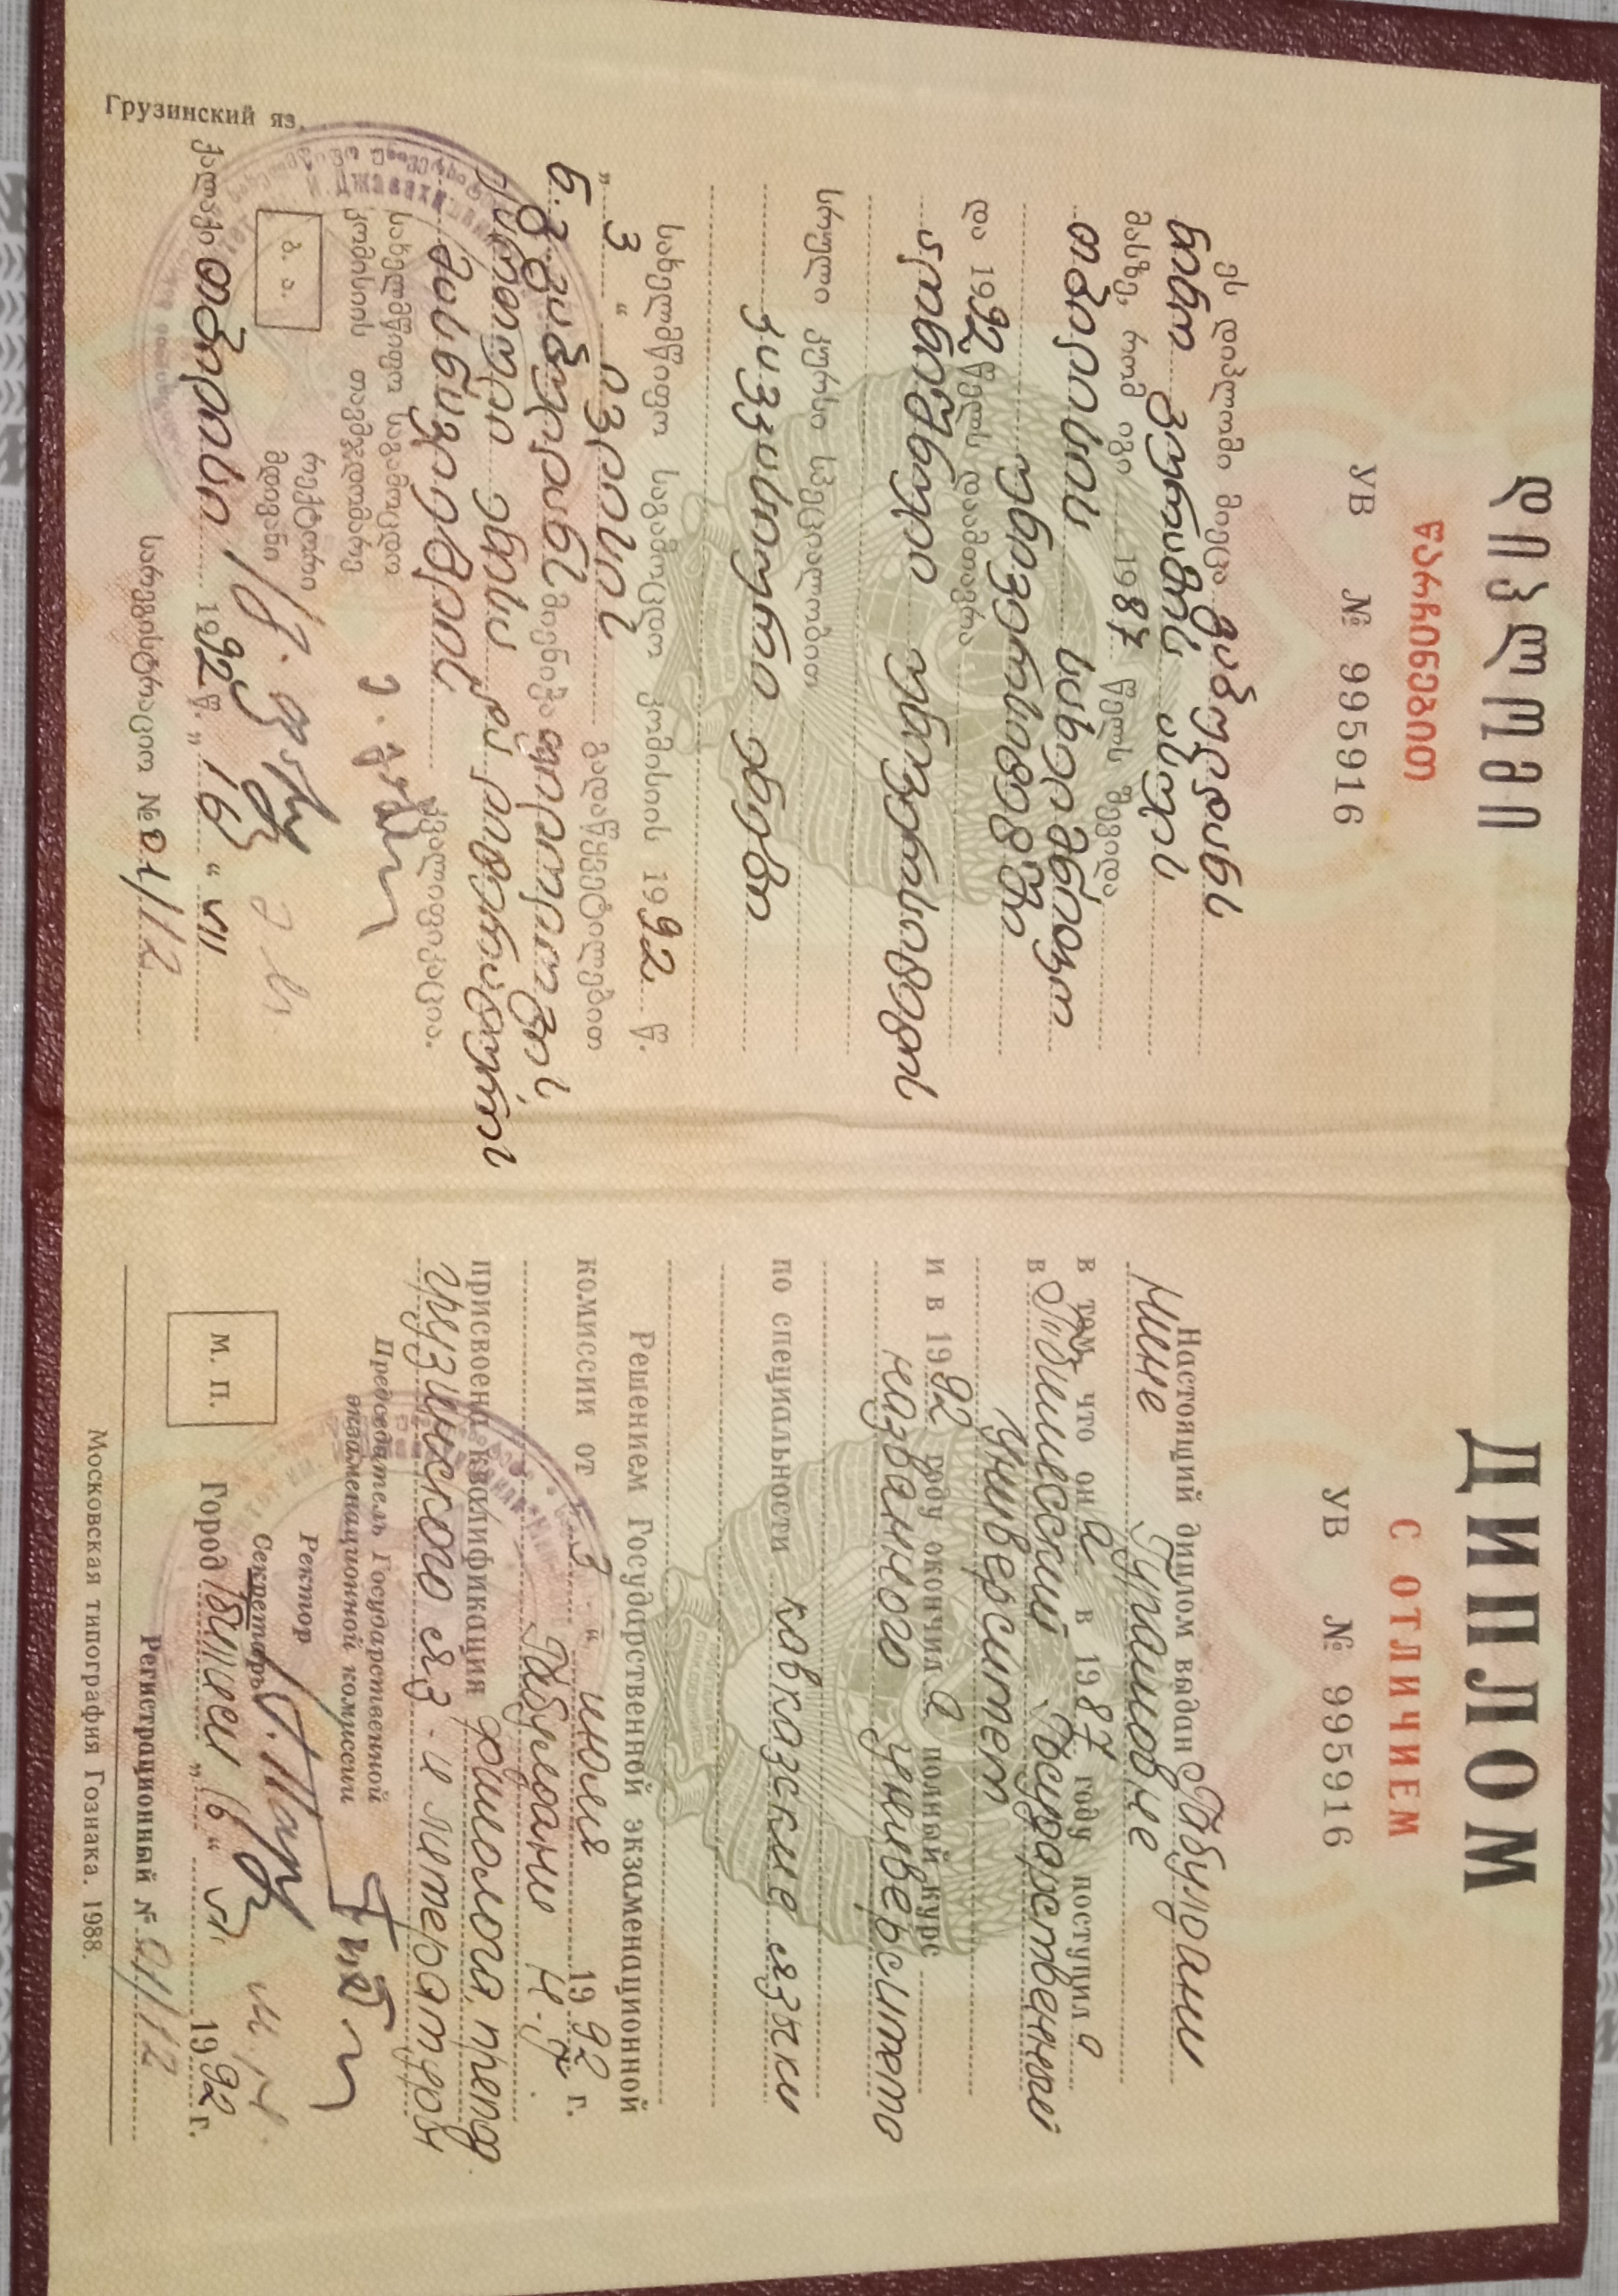 დიპლომი
წარჩინებით
УВ № 995916
ეს დიპლომი მიეცა გაბულდანს
ნინო გურამის ასულს
მასზე, რომ იგი 1987 წელს შევიდა
თბილისის სახელმწიფო
უნივერსიტეტში
და 1992 წელს დაამთავრა
აღნიშნული უნივერსიტეტის
სრული კურსი სპეციალობით
კავკასიური ენები
სახელმწიფო საგამოცდო კომისიის 1992 წ.
„ 3 “ ივლისის გადაწყვეტილებით
ნ. გ. მიენიჭა ფილოლოგის
ქართული ენისა და ლიტერატურის
მასწავლებლის კვალიფიკაცია.
სახელმწიფო საგამოცდო
კომისიის თავმჯდომარე
რექტორი
მდივანი
ბ. ა.
ქალაქი თბილისი 1992 წ. „ 16 “ VII
სარეგისტრაციო № 01/12
Грузинский яз.
ДИПЛОМ
С ОТЛИЧИЕМ
УВ № 995916
Настоящий диплом выдан
Нине Гурамовне
в том, что она в 1987 году поступила
в Тбилисский Государственный
Университет
и в 1992 году окончила полный курс
названного университета
по специальности кавказские языки
Решением Государственной экзаменационной
комиссии от „ 3 “ июля 1992 г.
Н. Г.
присвоена квалификация филолога, препод.
грузинского яз. и литературы
Председатель Государственной
экзаменационной комиссии
Ректор
Секретарь
М. П.
Город Тбилиси „ 16 “ VII 1992 г.
Регистрационный № 01/12
Московская типография Гознака. 1988.